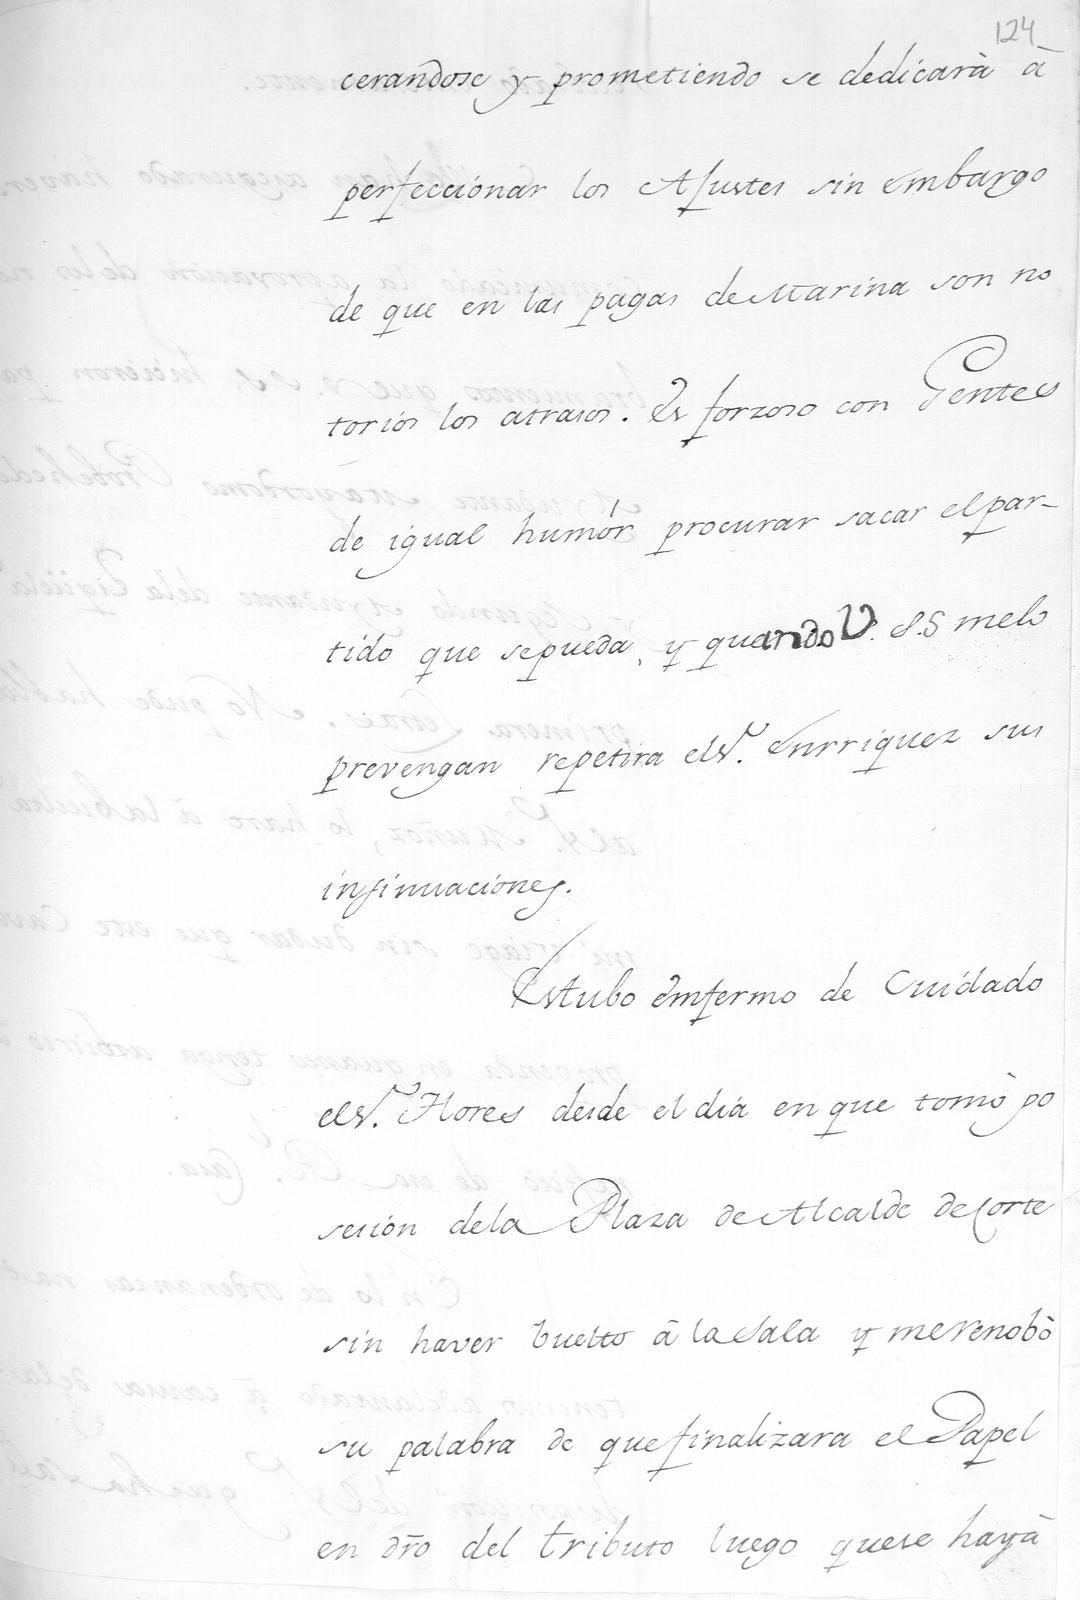 124
cerandose y prometiendo se dedicarà à
perfeccionar los Ajustes sin embargo
de que en las pagas de Marina son no
torios los atrasos. Es forzoso con Gentes
de igual humór procurar sacar el par-
tido que sepueda, y quando V. S.S melo
prevengan repetira els.r Enrriquez sus
insinuaciones.
Estubo emfermo de Cuidado
els.r Flores desde el dia en que tomò po
sesión dela Plaza de Alcalde de Corte
sin haver buelto à la Sala y merenobò
su palabra de que finalizara el Papel
en dro del tributo luego quese hayà